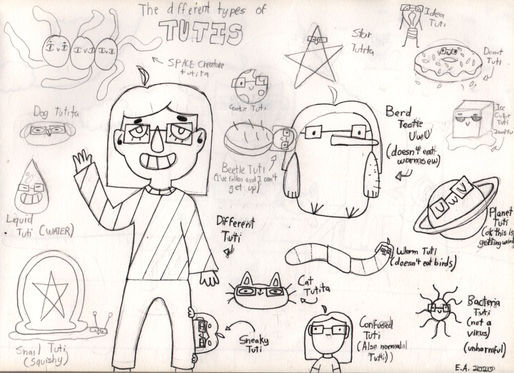 The different types of
TUTIS
SPACE Creature
tutita
Star
Tutita
Idea
Tuti
Donut
Tuti
Dog Tutita
Cookie Tuti
Beetle Tuti
(I've fallen and I can't
get up)
Berd
Teotie
UwU
(doesn't eat
worms ew)
Ice
Cube
Tuti
Liquid
Tuti (WATER)
Different
Tuti
UwU
Planet
Tuti
(ok this is
getting weird)
Worm Tuti
(doesn't eat birds)
Cat
Tutita
Snail Tuti
(Squishy)
Sneaky
Tuti
Confused
Tuti
(Also normal
Tuti)
Bacteria
Tuti
(not a
virus)
(unharmful)
E.A. 2020